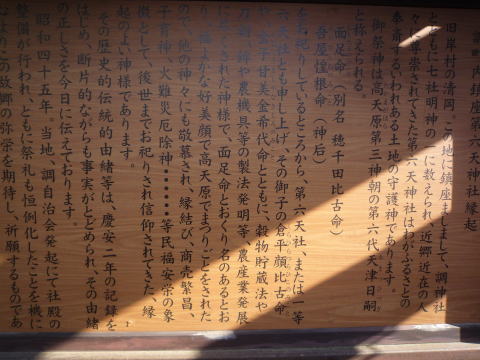 調内鎮座第六天社神社縁起
旧岸村の清岡、この地に鎮座しまして、調神社
とともに七社明神の一に数えられ、近郷近在の人
々に尊崇されてきた第六天神社はわがふるさとの
奉斎するいわれある土地の守護神であります。
御祭神は高天原第三神朝の第六代天津日嗣
と称えられる
面足命（別名 穂千田比古命）
吾屋惶根命（神后）
を お祀りしているところから、第六天社、または一等
六天社とも申し上げ、その御子の倉平顔比古命
や、金子甘美金希代命とともに、穀物貯蔵法や
刀剣、錦や農機具等の製法発明等、農産業発展
に尽くされた神様で、面足命とおくり名のあるとお
り、描よかな好美顔で高天原でまつりごとをされた
ので、他の神々にも敬慕され、縁結び、商売繁昌、
子育神、火難災厄除神……等民福安学の象
徴として、後世までお祀りされ信仰されてきた、縁
起のよい神様であります。
その歴史的伝統的由緒等は、慶安二年の記録を
はじめ、断片的ながらも事実がとどめられ、その由緒
の正しさを今日に伝えております。
昭和四十五年。当地、調自治会発起にて社殿の
整備が行われ、ともに祭礼も恒例化したことを機に
この故郷の弥栄を期待し、祈願するものであ